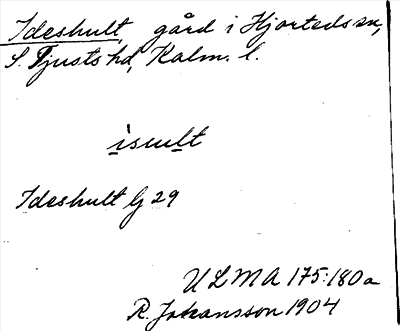 Ideshult, gård i Hjorteds sn,
S. Tjusts hd, Kalm. l.
isult
Ideshult Lj 29
ULMA 175:180a
R. Johansson 1904